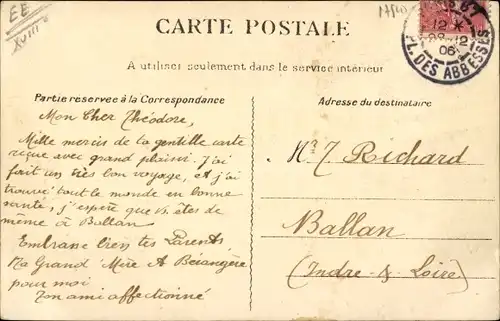 EE
XVIII
CARTE POSTALE
12 *
-12
06
PL. DES ABBESSES
A utiliser seulement dans le service intérieur
Partie reservée à la Correspondance
Adresse du destinataire
Mon Cher Théodore,
Mille mercis de ta gentille carte
reçue avec grand plaisir. J'ai
fait un très bon voyage, et j'ai
trouvé tout le monde en bonne
santé, j'espère que vs êtes de
même à Ballan
Embrasse bien tes Parents,
Ta Grand' Mère & Bérangère
pour moi
Ton ami affectionné
Mr T. Richard
Ballan
(Indre-&-Loire)